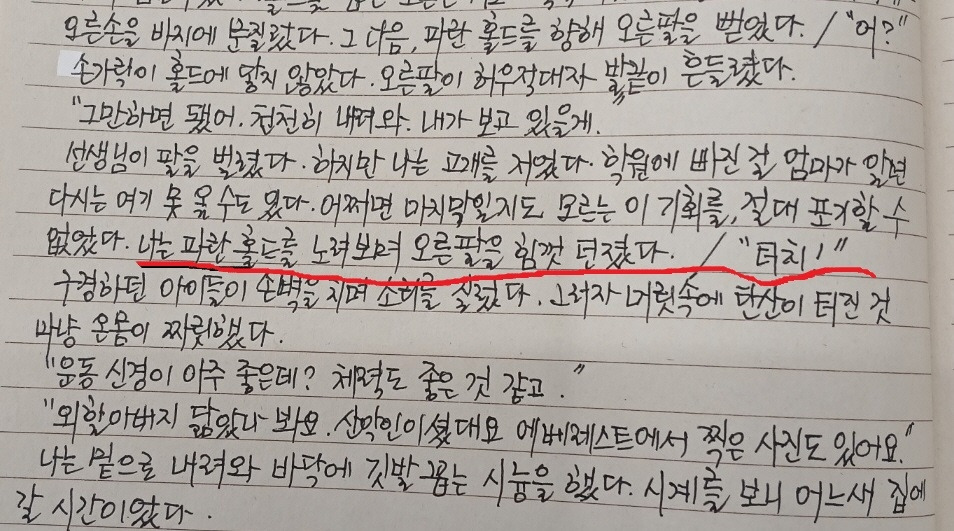 오른손을 바지에 문질렀다. 그 다음, 파란 홀드를 향해 오른팔을 뻗었다. / "어?"
손가락이 홀드에 닿지 않았다. 오른팔이 허우적대자 발끝이 흔들렸다.
"그만하면 됐어. 천천히 내려와. 내가 보고 있을게.
선생님이 팔을 벌렸다. 하지만 나는 고개를 저었다. 학원에 빠진 걸 엄마가 알면
다시는 여기 못 올 수도 있다. 어쩌면 마지막일지도 모르는 이 기회를, 절대 포기할 수
없었다. 나는 파란 홀드를 노려보며 오른팔을 힘껏 던졌다. / "터치!"
구경하던 아이들이 손벽을 치며 소리를 질렀다. 그러자 머릿속에 탄산이 터진 것
마냥 온몸이 짜릿했다.
"운동 신경이 아주 좋은데? 체력도 좋은 것 같고."
"외할아버지 닮았나 봐요. 산악인이셨대요 에베레스트에서 찍은 사진도 있어요."
나는 밑으로 내려와 바닥에 깃발 꼽는 시늉을 했다. 시계를 보니 어느새 집에
갈 시간이었다.